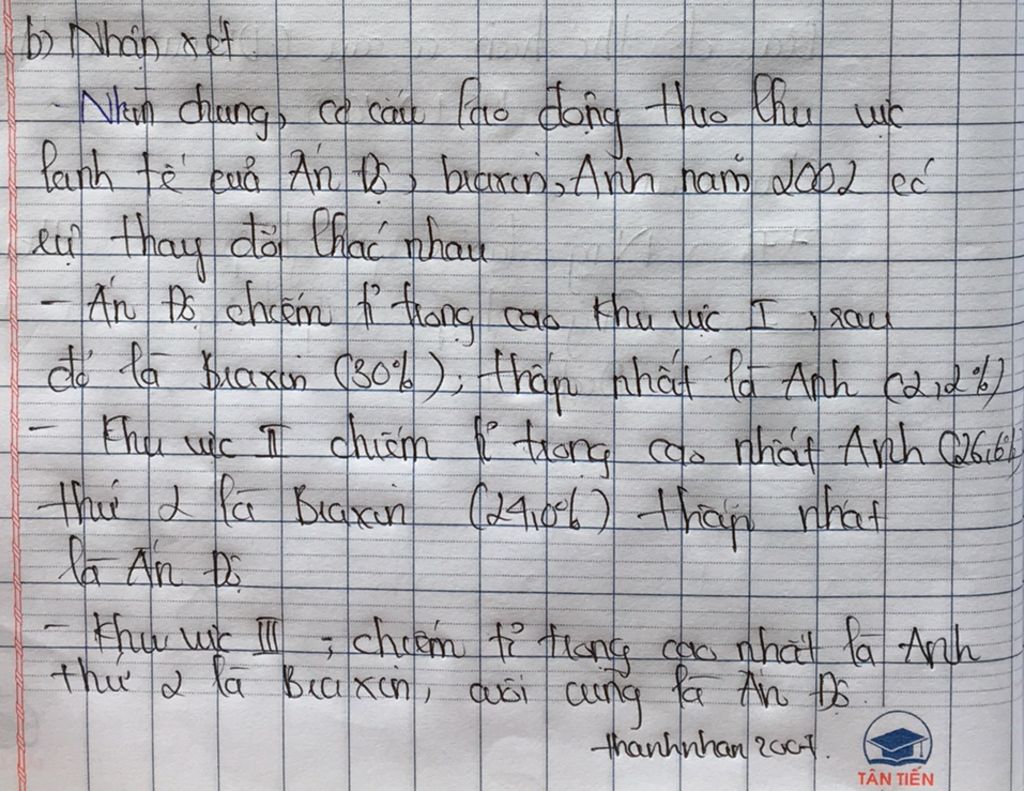 b) Nhận xét
- Nhìn chung, cơ cấu lao động theo khu vực
kanh tế của Ấn Độ, braxin, Anh năm 2002 có
sự thay đổi khác nhau
- Ấn Độ chiếm tỉ trọng cao khu vực I, sau
đó là Braxin (30%), thấp nhất là Anh (2,2%)
- Khu vực II chiếm tỉ trọng cao nhất Anh (26,6%)
thứ 2 là Braxin (24,0%) thấp nhất
là Ấn Độ
- Khu vực III ; chiếm tỉ trọng cao nhất là Anh
thứ 2 là Braxin, cuối cùng là Ấn Độ.
thanhnhan2007.
TÂN TIẾN